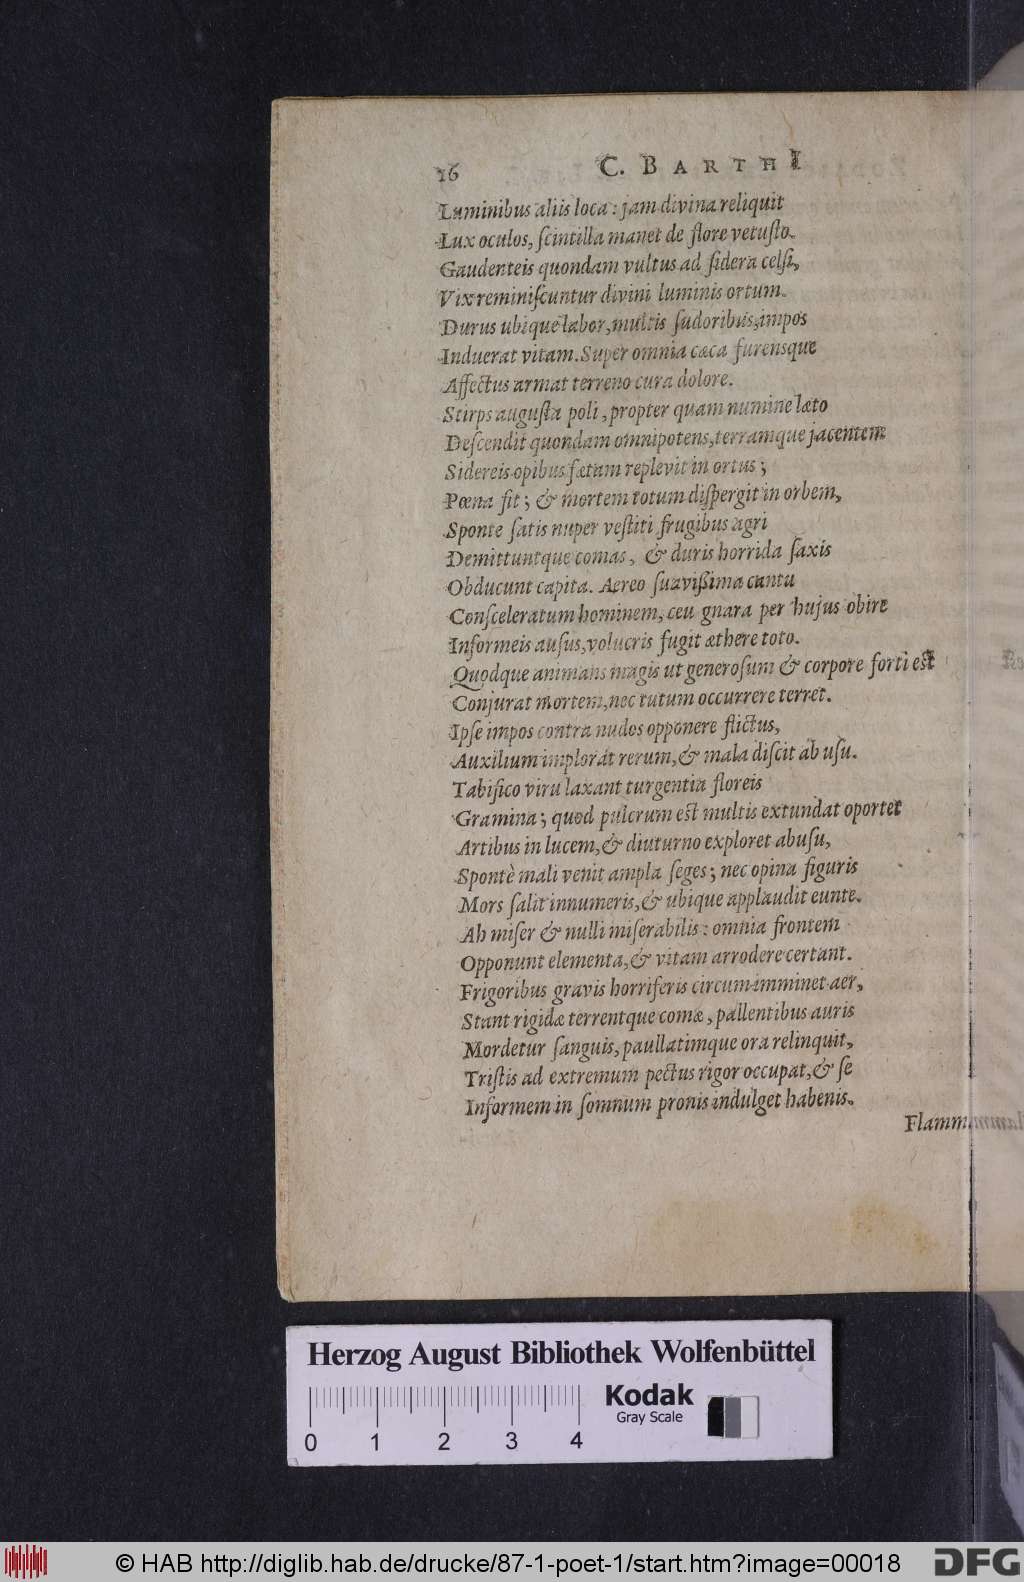 16 C. BARTHI
Luminibus aliis loca : jam divina reliquit
Lux oculos, ſcintilla manet de flore vetuſto.
Gaudenteis quondam vultus ad ſidera celſi,
Vix reminiſcuntur divini luminis ortum.
Durus ubique labor, multis ſudoribus, impos
Induerat vitam. Super omnia cæca furensque
Affectus armat terreno cura dolore.
Stirps auguſta poli, propter quam numine læto
Deſcendit quondam omnipotens, terramque jacentem
Sidereis opibus fætam replevit in ortus ;
Pœna fit ; & mortem totum diſpergit in orbem,
Sponte ſatis nuper veſtiti frugibus agri
Demittuntque comas, & duris horrida ſaxis
Obducunt capita. Aereo ſuavißima cantu
Conſceleratum hominem, ceu gnara per hujus obire
Informeis auſus, volucris fugit æthere toto.
Quodque animans magis ut generoſum & corpore forti est
Conjurat mortem, nec tutum occurrere terret.
Ipſe impos contra nudos opponere flictus,
Auxilium implorat rerum, & mala diſcit ab uſu.
Tabifico viru laxant turgentia floreis
Gramina ; quod pulcrum est multis extundat oportet
Artibus in lucem, & diuturno exploret abuſu,
Spontè mali venit ampla ſeges ; nec opina figuris
Mors ſalit innumeris, & ubique applaudit eunte.
Ah miſer & nulli miſerabilis : omnia frontem
Opponunt elementa, & vitam arrodere certant.
Frigoribus gravis horriferis circum imminet aer,
Stant rigidæ terrentque comæ, pallentibus auris
Mordetur ſanguis, paullatimque ora relinquit,
Triſtis ad extremum pectus rigor occupat, & ſe
Informem in ſomnum pronis indulget habenis.
Flamm
Herzog August Bibliothek Wolfenbüttel
Kodak
Gray Scale
0 1 2 3 4
© HAB http://diglib.hab.de/drucke/87-1-poet-1/start.htm?image=00018
DFG